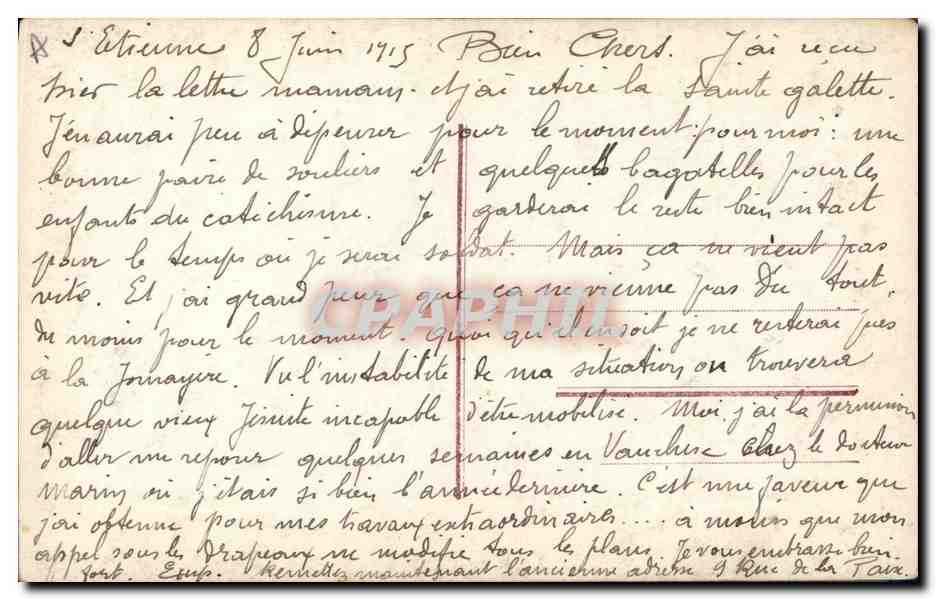 St Etienne 8 Juin 1915 Bien Chers. J'ai reçu
hier la lettre maman. et j'ai retiré la sainte galette.
J'en aurai peu à dépenser pour le moment: pour moi: une
bonne paire de souliers et quelques bagatelles pour les
enfants du catéchisme. Je garderai le reste bien intact
pour le temps où je serai soldat. Mais ça ne vient pas
vite. Et j'ai grand peur que ça ne vienne pas du tout,
du moins pour le moment. Quoi qu'il en soit je ne resterai pas
à la Vu l'instabilité de ma situation on trouvera
quelque vieux Jésuite incapable d'être mobilisé. Moi j'ai la permission
d'aller me reposer quelques semaines en Vaucluse chez le docteur
Marin où j'étais si bien l'année dernière. C'est une faveur que
j'ai obtenue pour mes travaux extraordinaires .... à moins que mon
appel sous les drapeaux ne modifie tous les plans. Je vous embrasse bien
fort. Remettez maintenant l'ancienne adresse 9 Rue de la Paix.
CPAPHIL